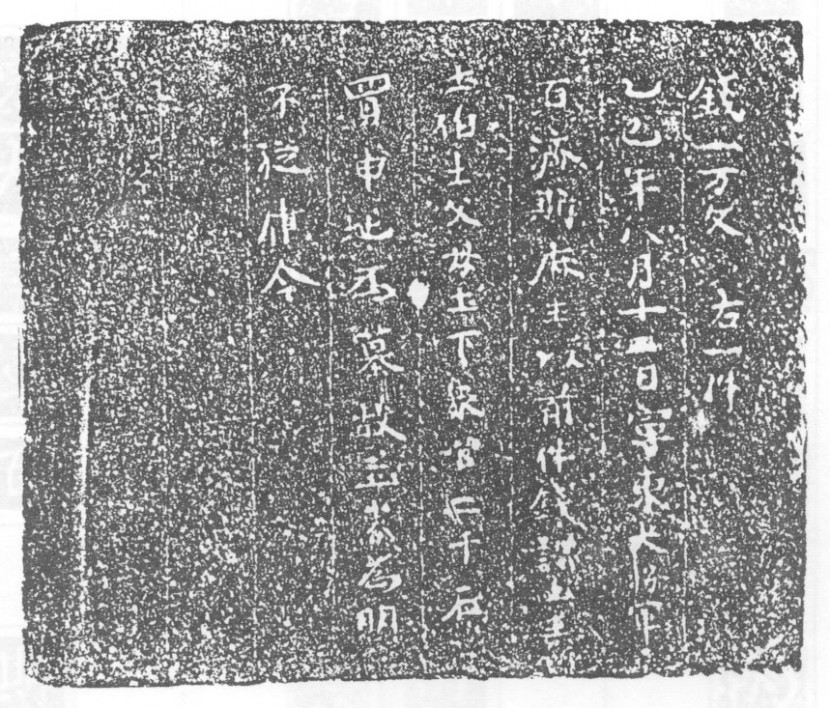 錢一万文 右一件
乙巳年八月十二日寧東大将軍
百済斯麻王以前件錢訟土王
土伯土父母上下衆官二千石
買申地為墓故立券為明
不從律令